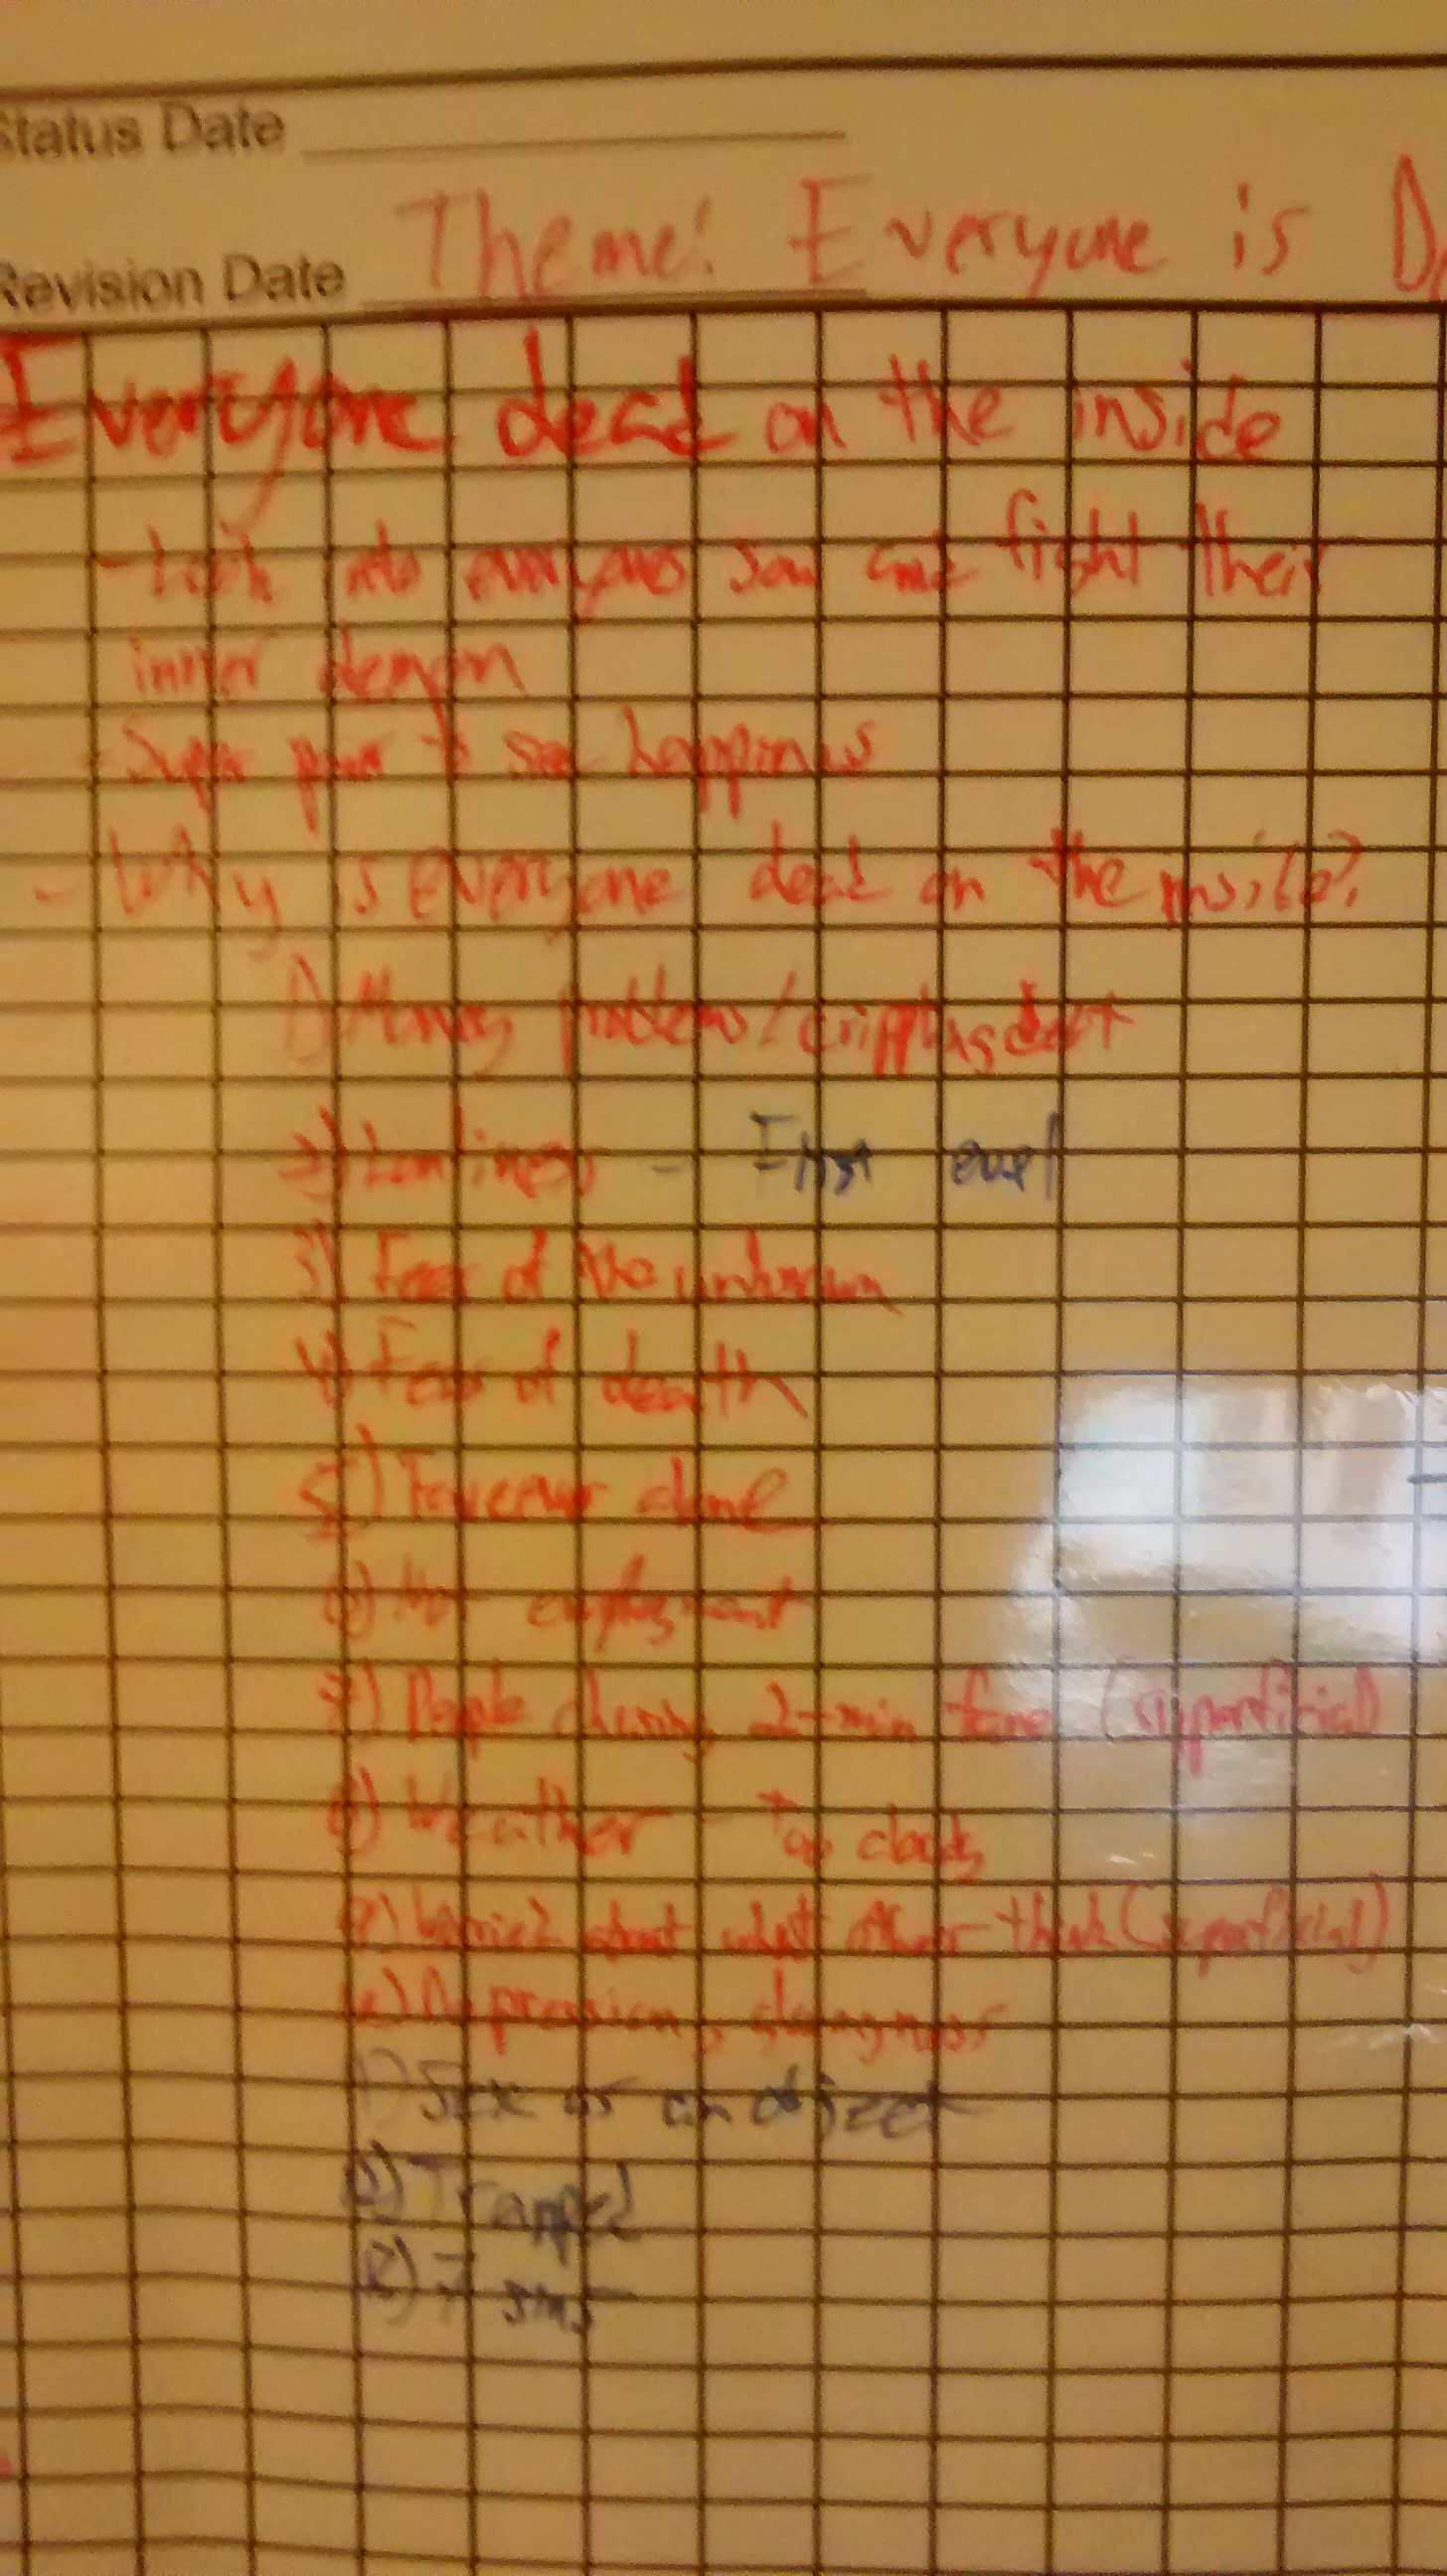 Status Date
Theme: Everyone is
Revision Date
Everyone dead on the inside
- Look into everyones soul and fight their
inner demon
- Super power to see happiness
- Why is everyone dead on the inside?
1) Money problems/crippling debt
2) Lonliness - First level
3) Fear of the unknown
4) Fear of death
5) Forever alone
6) employment
7) People chasing 2-min fame (superficial)
8) Weather - Too cloudy
9) Worried about what other think (superficial)
10) Depression,
1) Sex as an object
) Trapped
) 7 sins